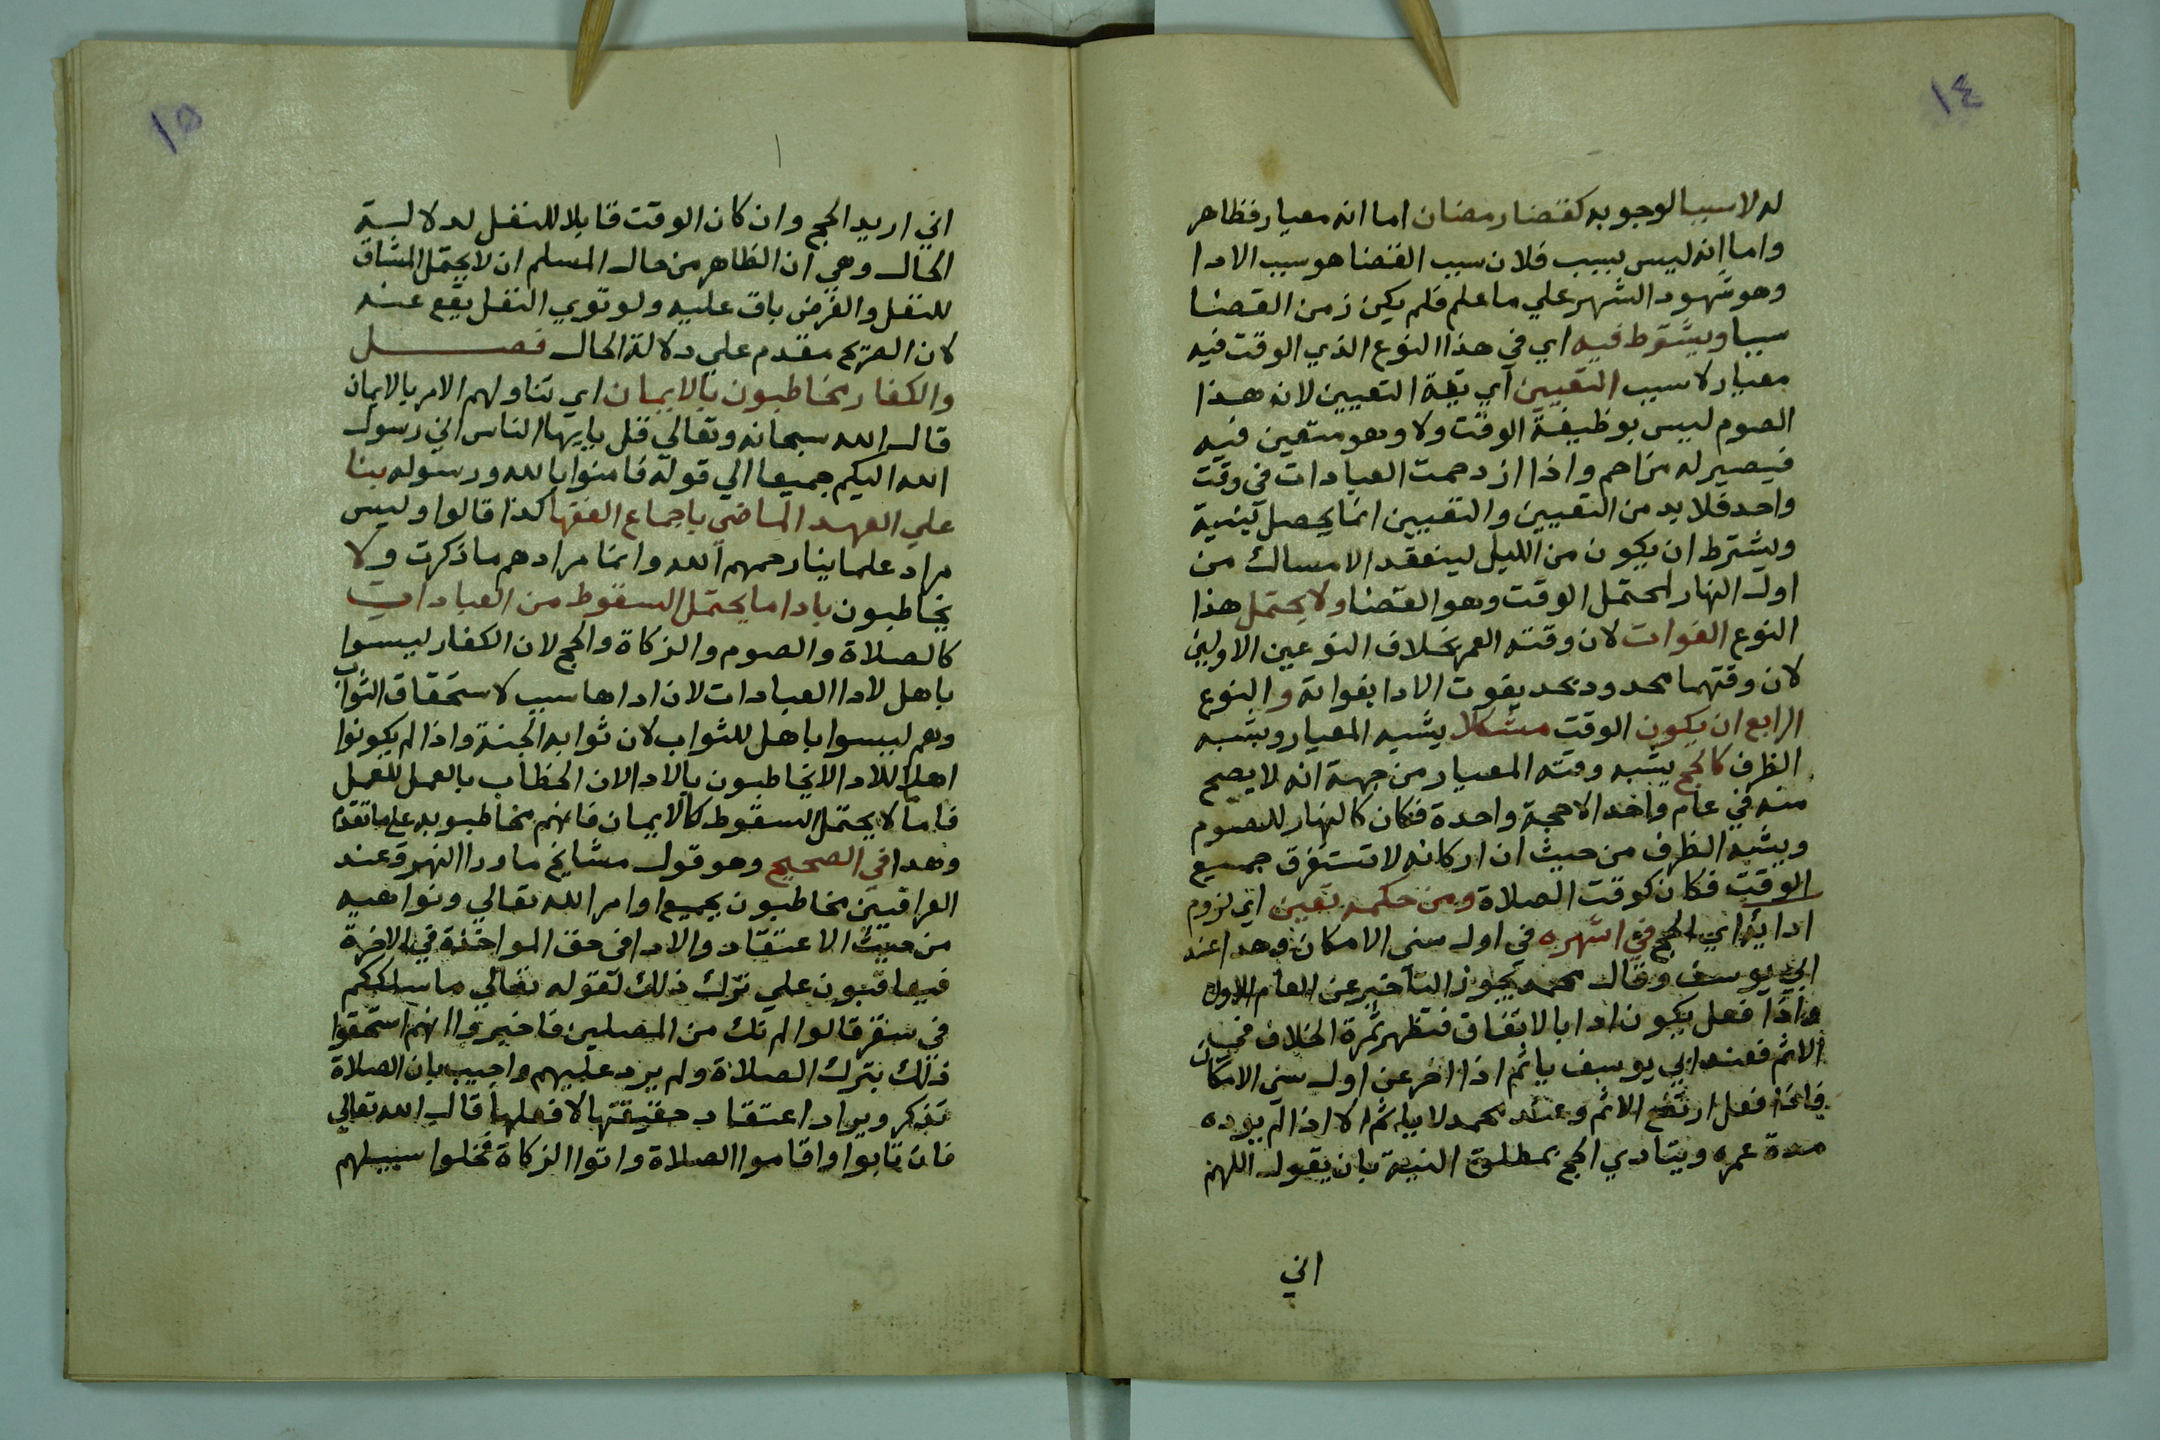 ١٤
له لا سببا لوجوبه كقضا رمضان اما انه معيار فظاهر
واما انه ليس بسبب فلان سبب القضا هو سبب الادا
وهو شهود الشهر علي ما علم فلم يكن زمن القضا
سببا ويشترط فيه اي في هذا النوع الذي الوقت فيه
معيار لا سبب التعيين اي نية التعيين لانه هذا
الصوم ليس بوظيفة الوقت ولا وهو متعين فيه
فيصير له مزاحم واذا ازدحمت العبادات في وقت
واحد فلا بد من التعيين والتعيين انما يحصل بنية
ويشترط ان يكون من الليل لينعقد الامساك من
اول النهار لمحتمل الوقت وهو القضا ولا يحتمل هذا
النوع الفوات لان وقته العمر بخلاف النوعين الاولين
لان وقتهما محدود بحد يفوت الادا بفواته والنوع
الرابع ان يكون الوقت مشكلا يشبه المعيار ويشبه
الظرف كالحج يشبه وقته المعيار من جهة انه لا يصح
منه في عام واحد الا حجة واحدة فكان كالنهار للصوم
ويشبه الظرف من حيث ان اركانه لا تستغرق جميع
الوقت فكان كوقت الصلاة ومن حكمه تعين اي لزوم
ادايه اي الحج في اشهره في اول سنى الامكان وهدا عند
ابي يوسف وقال محمد يجوز التأخير عن العام الاول
واذا فعل يكون ادا بالاتفاق فتظهر ثمرة الخلاف في
الاثم فعند ابي يوسف ياثم اذا اخر عن اول سنى الامكان
فاذا فعل ارتفع الاثم وعند محمد لا ياثم الا اذا لم يوده
مدة عمره ويتادي الحج بمطلق النية بان يقول اللهم
اني
١٥
اني اريد الحج وان كان الوقت قابلا للنفل لدلالة
الحال وهي ان الظاهر من حال المسلم ان لا يحتمل المشاق
للنفل والفرض باق عليه ولو نوي النفل يقع عنه
لان الصريح مقدم علي دلالة الحال فصل
والكفار مخاطبون بالايمان اي تناولهم الامر بالايمان
قال الله سبحانه وتعالي قل يايها الناس اني رسول
الله اليكم جميعا الي قوله فامنوا بالله ورسوله بنا
علي العهد الماضي باجماع الفقها كذا قالوا وليس
مراد علماينا رحمهم الله وانما مرادهم ما ذكرت ولا
يخاطبون بادا ما يحتمل السقوط من العبادات
كالصلاة والصوم والزكاة والحج لان الكفار ليسوا
باهل لادا العبادات لان اداها سبب لاستحقاق الثواب
وهم ليسوا باهل للثواب لان ثوابه الجنة واذا لم يكونوا
اهلا للادا لا يخاطبون بالادا لان الخطاب بالعمل للعمل
فاما لا يحتمل السقوط كالايمان فانهم مخاطبو به على ما تقدم
وهدا في الصحيح وهو قول مشايخ ما ورا النهر وعند
العراقيين مخاطبون بجميع اوامر الله تعالي ونواهيه
من حيث الاعتقاد والادا فى حق المواخذة في الاخرة
فيعاقبون علي ترك ذلك لقوله تعالي ما سلككم
في سقر قالوا لم نك من المصلين فاخبروا انهم استحقوا
ذلك بترك الصلاة ولم يرد عليهم واجيب بان الصلاة
تذكر ويراد اعتقاد حقيقتها لا فعلها قال الله تعالي
فان تابوا واقاموا الصلاة واتوا الزكاة فخلوا سبيلهم